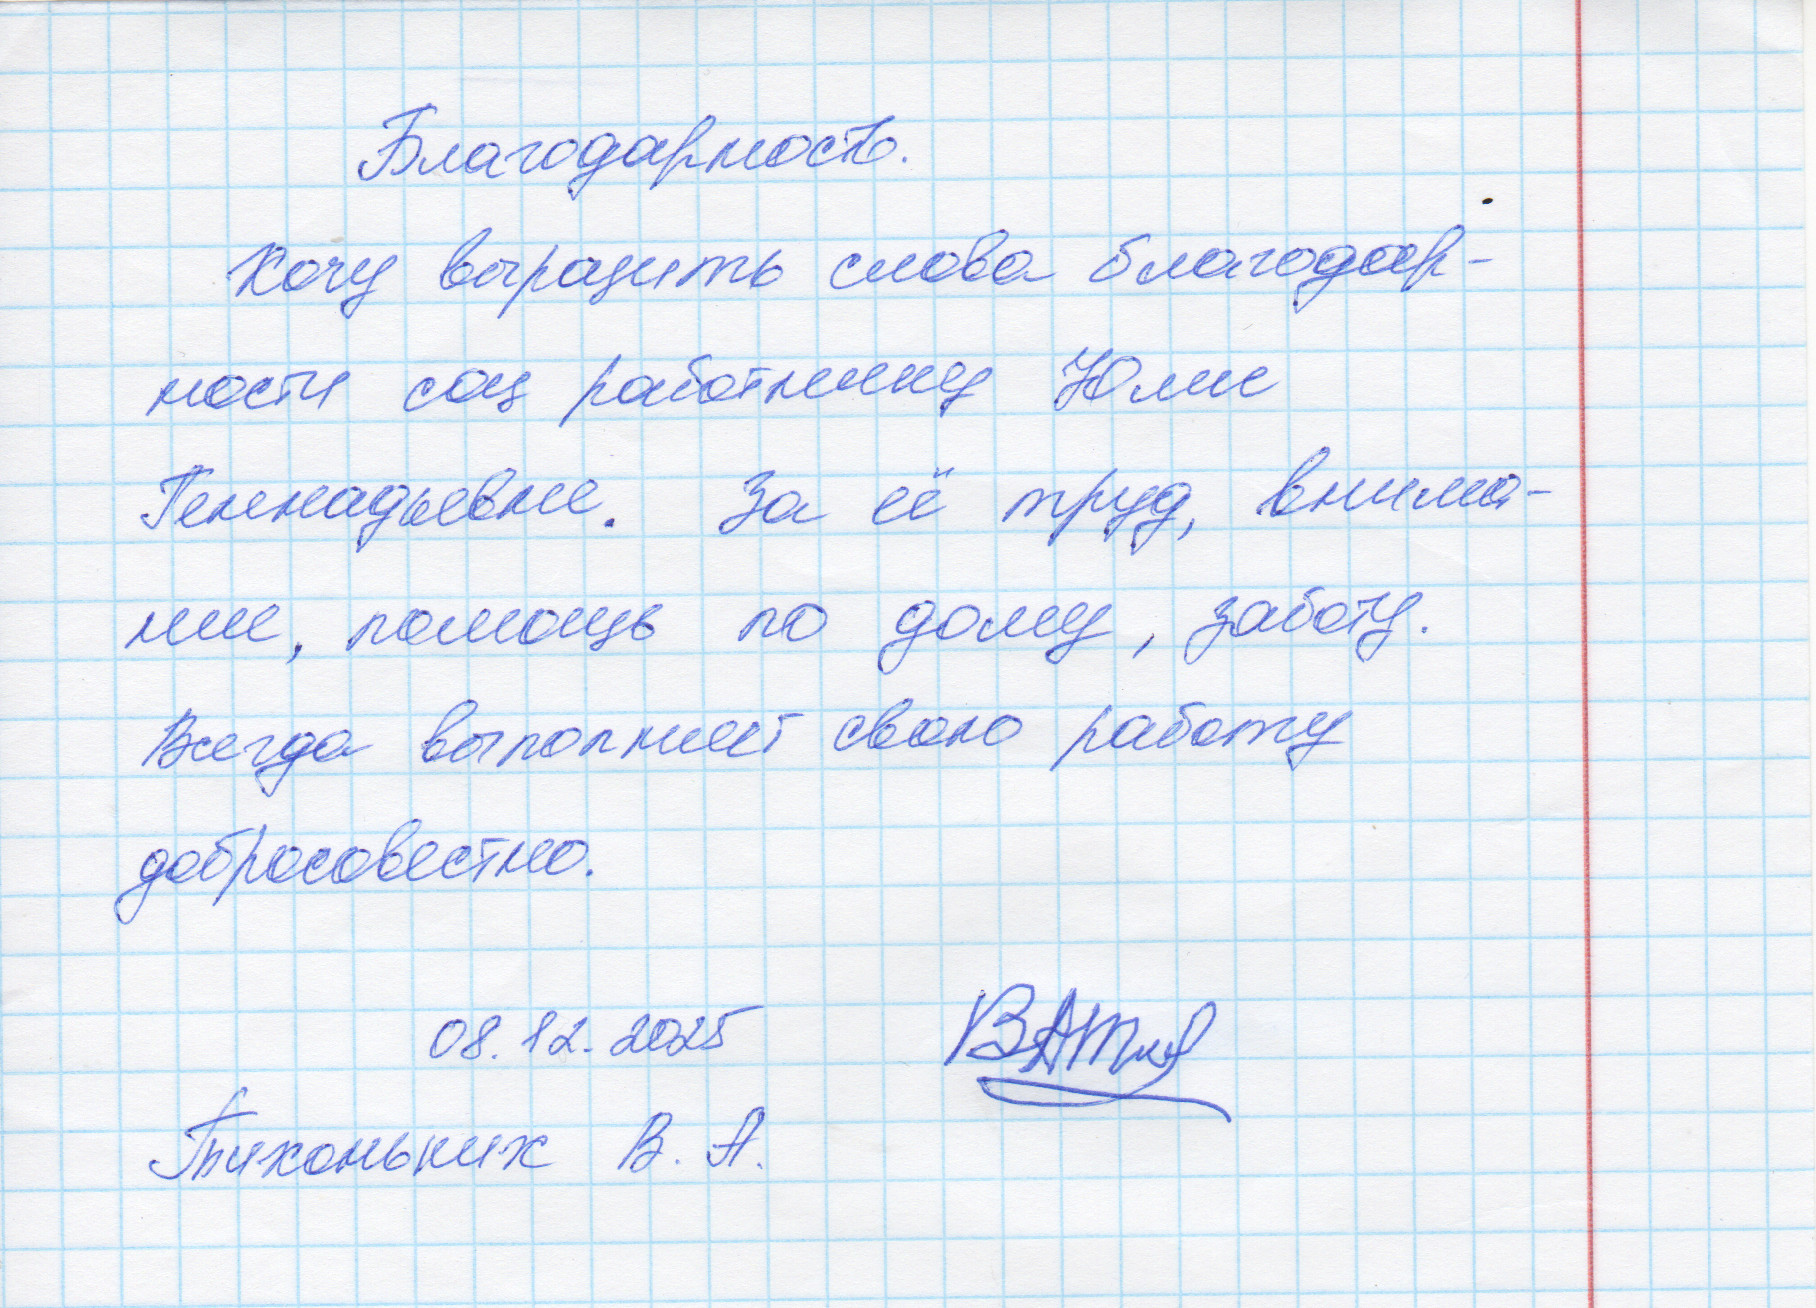 Благодарность.
Хочу выразить слова благодар-
ности соц работнику Юлие
Геннадьевне. За её труд, внима-
ние, помощь по дому, заботу.
Всегда выполняет свою работу
добросовестно.
08.12.2025
Тихоньких В. А.